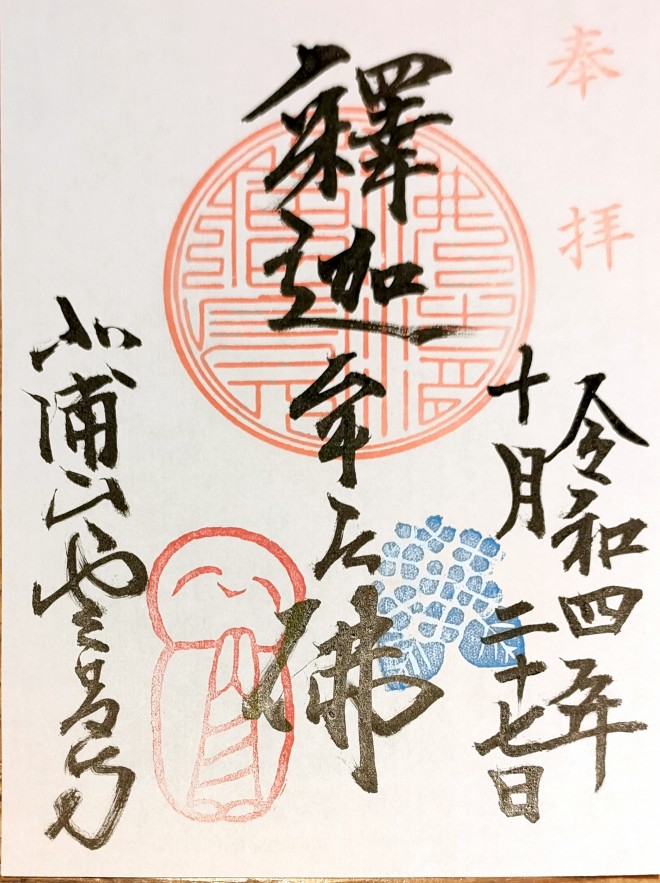 奉拝
令和四年
十月二十七日
釋迦牟尼佛
北浦山雲昌寺